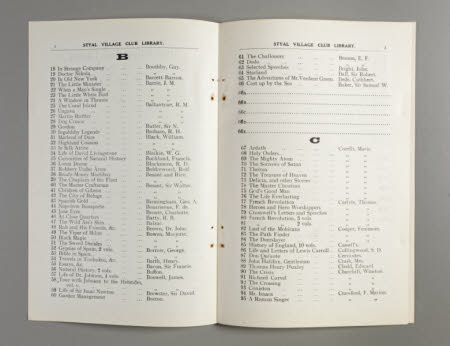 STYAL VILLAGE CLUB LIBRARY.
B
18 In Strange Company ... Boothby, Guy.
19 Doctor Nikola ... "
20 In Old New York ... Barrett
21 The Little Minister ... Barrie, J. M.
22 When a Man's Single ... "
23 The Little White Bird ... "
24 A Window in Thrums ... "
25 The Coral Island ... Ballantyne, R. M.
26 Ungava ... "
27 Martin Rattler ... "
28 Dog Crusoe ... "
29 Gordon ... Butler, Sir
30 Ingoldsby Legends ... Barham, R. H.
31 Macleod of Dare ... Black, William.
32 Highland Cousins ... "
33 In Silk Attire ... "
34 Life of David Livingstone ... Blaikie, W. G.
35 Curiosities of Natural History ... Buckland, Francis.
36 Lorna Doone ... Blackmore, R. D.
37 Robbery Under Arms ... Boldrewood, Rolf
38 Ready Money Mortiboy ... Besant and Rice.
39 The Chaplain of the Fleet ... "
40 The Master Craftsman ... Besant, Sir Walter.
41 Children of Gibeon ... "
42 The City of Refuge ... "
43 Spanish Gold ... Birmingham, Geo. A.
44 Napoleon Bonaparte ... Bourrienne, F. de
45 Jane Eyre ... Bronte, Charlotte.
46 At Close Quarters ... Barry, R. H.
47 The Wild Ass's Skin ... Balzac.
48 Rab and His Friends, &c. ... Brown, Dr. John
49 The Viper of Milan ... Bowen, Marjorie.
50 Black Magic ... "
51 The Sword Decides ... "
52 Gypsies of Spain, 2 vols. ... Borrow, George.
53 Bible in Spain, ... "
54 Travels in Timbuktu, &c. ... Barth, Henry.
55 Essays, &c. ... Bacon, Sir Francis
56 Natural History, 2 vols. ... Buffon.
57 Life of Dr. Johnson, 2 vols. ... Boswell, James.
58 Tour with Johnson to the Hebrides, vol. v. ... "
59 Life of Sir Isaac Newton ... Brewster, Sir David.
60 Garden Management ... Beeton.
STYAL VILLAGE CLUB LIBRARY.
61 The Challoners ... Benson, E. F.
62 Dodo ... "
63 Selected Speeches ... Bright, John
64 Starland ... Ball, Sir Robert.
65 The Adventures of Mr. Verdant Green ... Bede, Cuthbert.
66 Cast up by the Sea ... Baker, Sir Samuel W.
66a
66b
66c
66d
66e
C
67 Ardath ... Corelli, Marie.
68 Holy Orders ... "
69 The Mighty Atom ... "
70 The Sorrows of Satan ... "
71 Thelma ... "
72 The Treasure of Heaven ... "
73 Delicia, and other Stories ... "
74 The Master Christian ... "
75 God's Good Man ... "
76 The Life Everlasting ... "
77 French Revolution ... Carlyle, Thomas.
78 Heroes and Hero Worshippers ... "
79 Cromwell's Letters and Speeches ... "
80 French Revolution, 2 vols. ... "
81 " 2 vols. ... "
82 Last of the Mohicans ... Cooper, Fenimore.
83 The Path Finder ... "
84 The Deerslayer ... "
85 History of England, 10 vols. ... Cassell's.
86 Life and Letters of Lewis Carroll ... Collingwood, S. D.
87 Don Quixote ... Cervantes.
88 John Halifax, Gentleman ... Craik, Mrs.
89 Thomas Henry Huxley ... Clodd, Edward.
90 The Crisis ... Churchill, Winston.
91 Richard Carvel ... "
92 The Crossing ... "
93 Coniston ... "
94 Mr. Isaacs ... Crawford, F. Marion.
95 A Roman Singer ... "